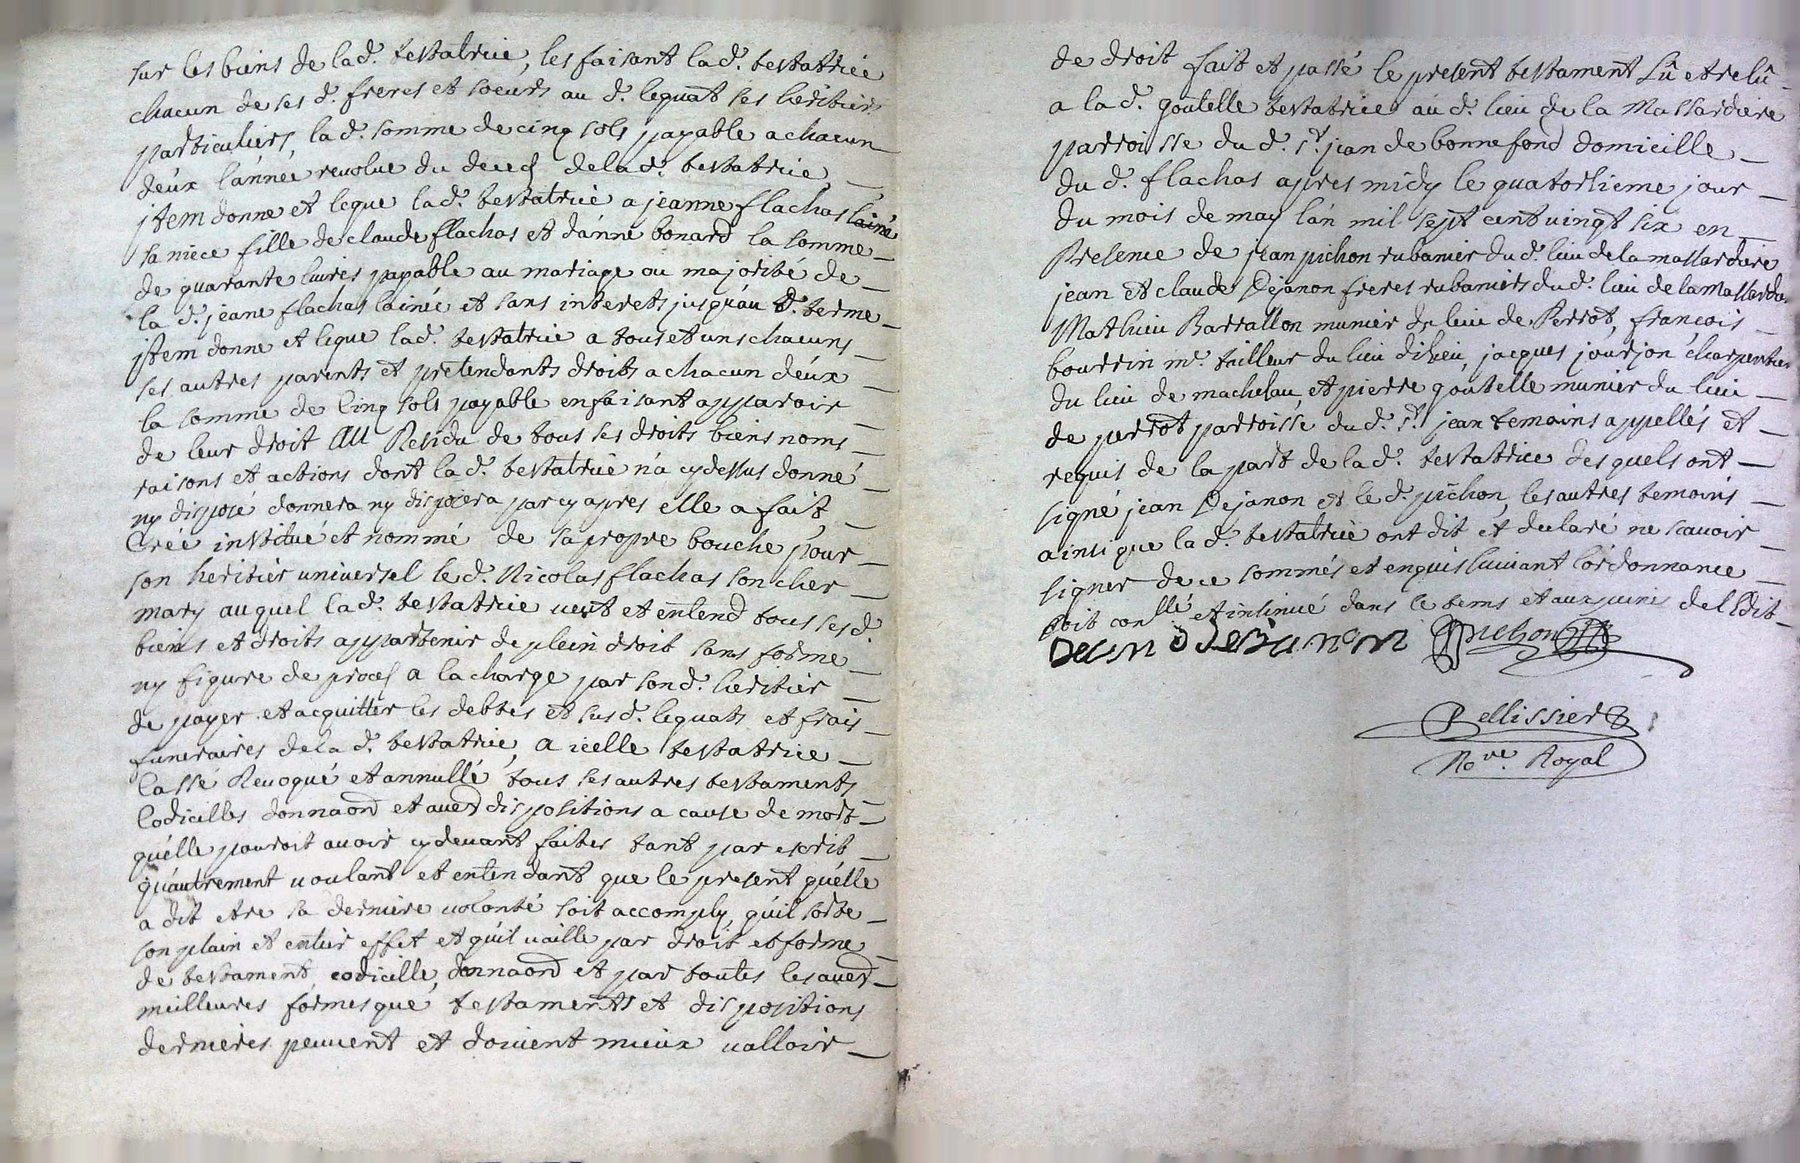 sur les biens de lad. testatrice, les faisant lad. testatrice
chacun de ses d. freres et soeurs aud. lequat ses heritiers
particuliers, lad. somme de cinq sols payable a chacun
deux lánnée revolue du deces de lad. testatrice
jtem donne et legue lad. testatrice a jeanne flachas lainé
sa niece fille de claude flachas et dánne bonard la somme
de quarante livres payable au mariage ou majorité de
la d. jeane flachas lainée et sans interets jusquáu d. terme
jtem donne et legue lad. testatrice a tous et uns chacuns
ses autres parents et pretendants droits a chacun deux
la somme de Cinq sols payable en faisant apparoir
de leur droit AU Residu de tous ses droits biens noms
raisons et actions dont lad. testatrice n'a cy dessus donné
ny disposé donnera ny disposera par cy apres elle a fait
Creé institué et nommé de sa propre bouche pour
son heritier universel led. Nicolas flachas son cher
mary au quel lad. testatrice veut et entend tous sesd.
biens et droits appartenir de plein droit sans forme
ny figure de proces a la charge par sond. heritier
de payer et acquitter les debtes et susd. lequats et frais
funeraires de la d. testatrice, a icelle testatrice
Cassé Revoqué et annullé tous ses autres testaments
Codicilles donnaond et auerd dispositions a cause de mort
quélle pouroit avoir cy devant faites tant par escrit
quáutrement voulant et entendant que le present quélle
a dit etre sa derniere volonté soit accomply, quíl sorte
son plain et entier effet et quíl vaille par droit et forme
de testament, codicille, donnaond et par toutes les auerd
meilleures formes que testaments et dispositions
dernieres peuvent et doivent mieux valloir
de droit fait et passé le present testament Lû et relû
a lad. goutelle testatrice aud. lieu de la Massardiere
parroisse dud. St. jean de bonnefond domicille
dud. flachas apres midy le quatorzieme jour
du mois de may lán mil sept cent vingt six en
Presence de jean pichon rubanier dud. lieu de la massardiere
jean et claude Dejanon freres rubaniers dud. lieu de la massardie
Mathieu Barrallon munier du lieu de Perrot, francois
bourrin me. tailleur du lieu díZieu, jacques jourjon charpentier
du lieu de machelau, et pierre goutelle munier du lieu
de perrot parroisse dud. St. jean temoins appellés et
requis de la part de lad. testatrice des quels ont
signé jean Dejanon et le d. pichon, les autres temoins
ainsi que lad. testatrice ont dit et declaré ne scavoir
signer de ce sommés et enquis suivant lórdonnance
soit conllé et insinué dans le tems et aux peines de l'Edit
Pichon
Pellissier
Nore. Royal